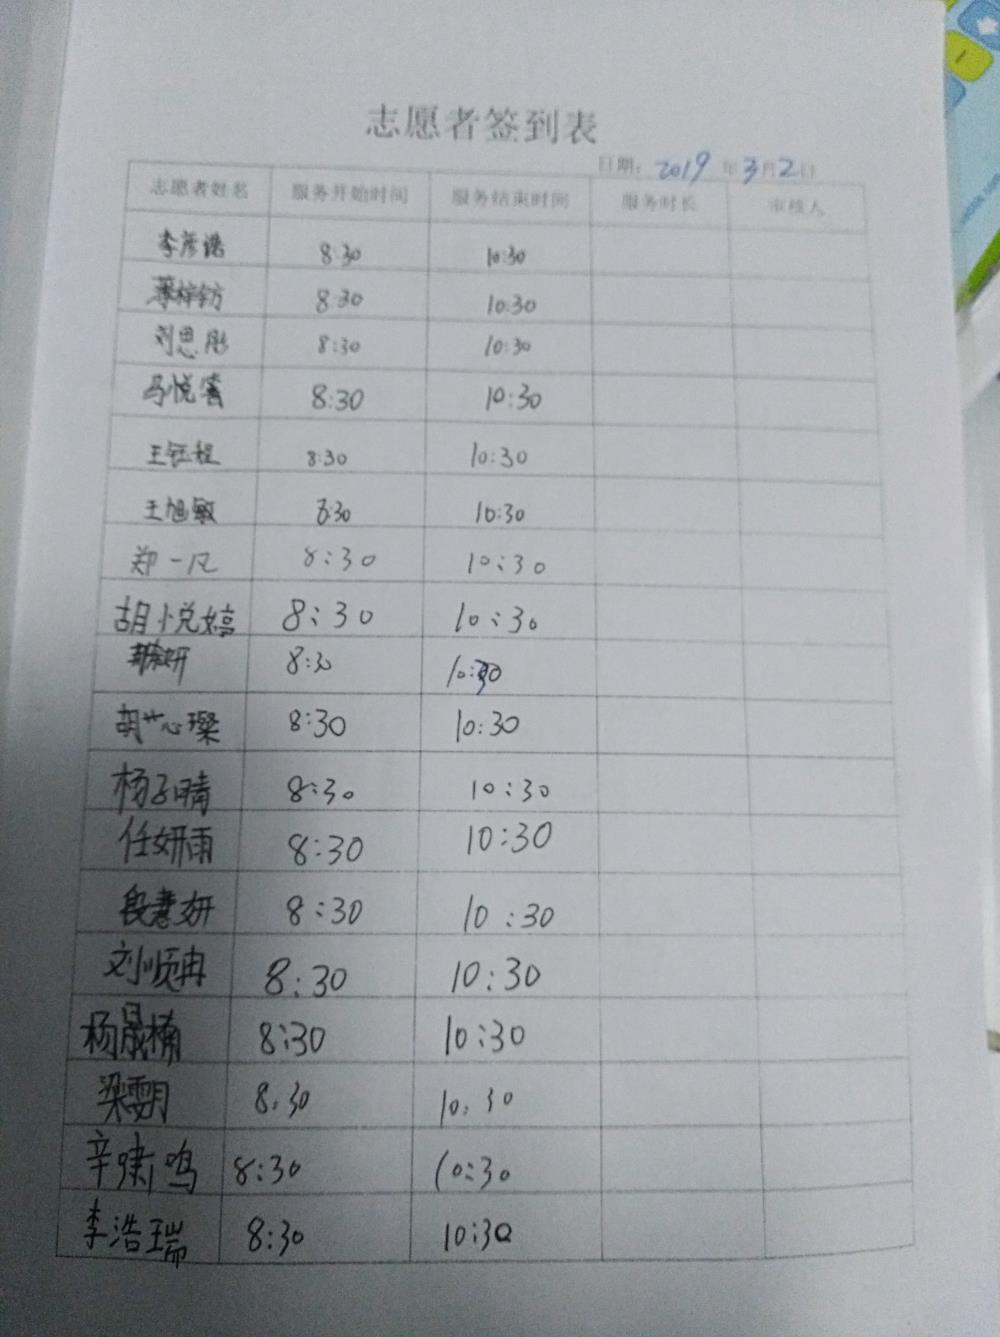 志愿者签到表
日期：2019年3月2日
志愿者姓名 服务开始时间 服务结束时间 服务时长 审核人
李彦浩 8:30 10:30
8:30 10:30
刘思彤 8:30 10:30
马悦 8:30 10:30
王钰程 8:30 10:30
王旭敏 8:30 10:30
郑一凡 8:30 10:30
胡悦婷 8:30 10:30
8:30 10:30
胡芯璨 8:30 10:30
杨子晴 8:30 10:30
任妍雨 8:30 10:30
段慧妍 8:30 10:30
刘顺冉 8:30 10:30
杨晟楠 8:30 10:30
梁雯月 8:30 10:30
辛啸鸣 8:30 10:30
李浩瑞 8:30 10:30